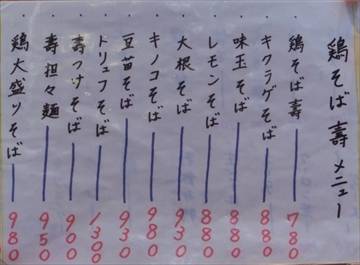 鶏そば 壽 メニュー
・鶏そば壽 780
・キクラゲそば 880
・味玉そば 880
・レモンそば 880
・大根そば 930
・キノコそば 980
・豆苗そば 930
・トリュフそば 1300
・壽つけそば 900
・壽担々麺 950
・鶏大盛ツそば 980